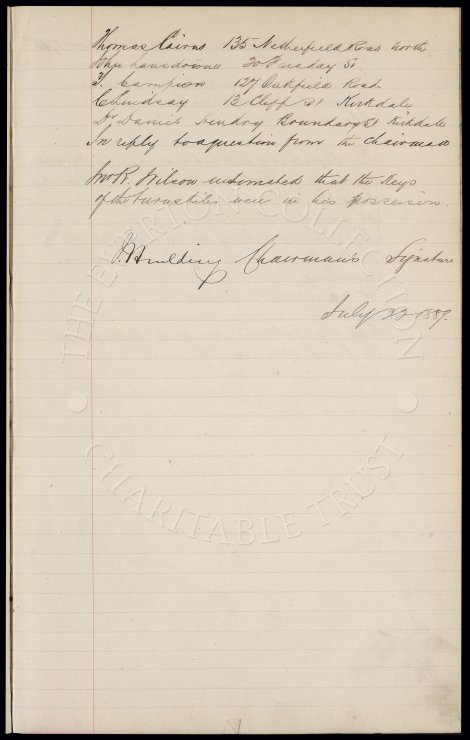 Thomas Cairns 135 Netherfield Road North
Lansdowne 20 Faraday St
T. Campion 127 Oakfield Road
C Lindsay 13 Cliff St Kirkdale
Dr Daniel Hendry Boundary St Kirkdale
In reply to a question from the Chairman
R. Wilson intimated that the Keys
of the turnstiles were in his possession.
J. Houlding Chairman's Signature
July 1889.
THE EVERTON COLLECTION
CHARITABLE TRUST